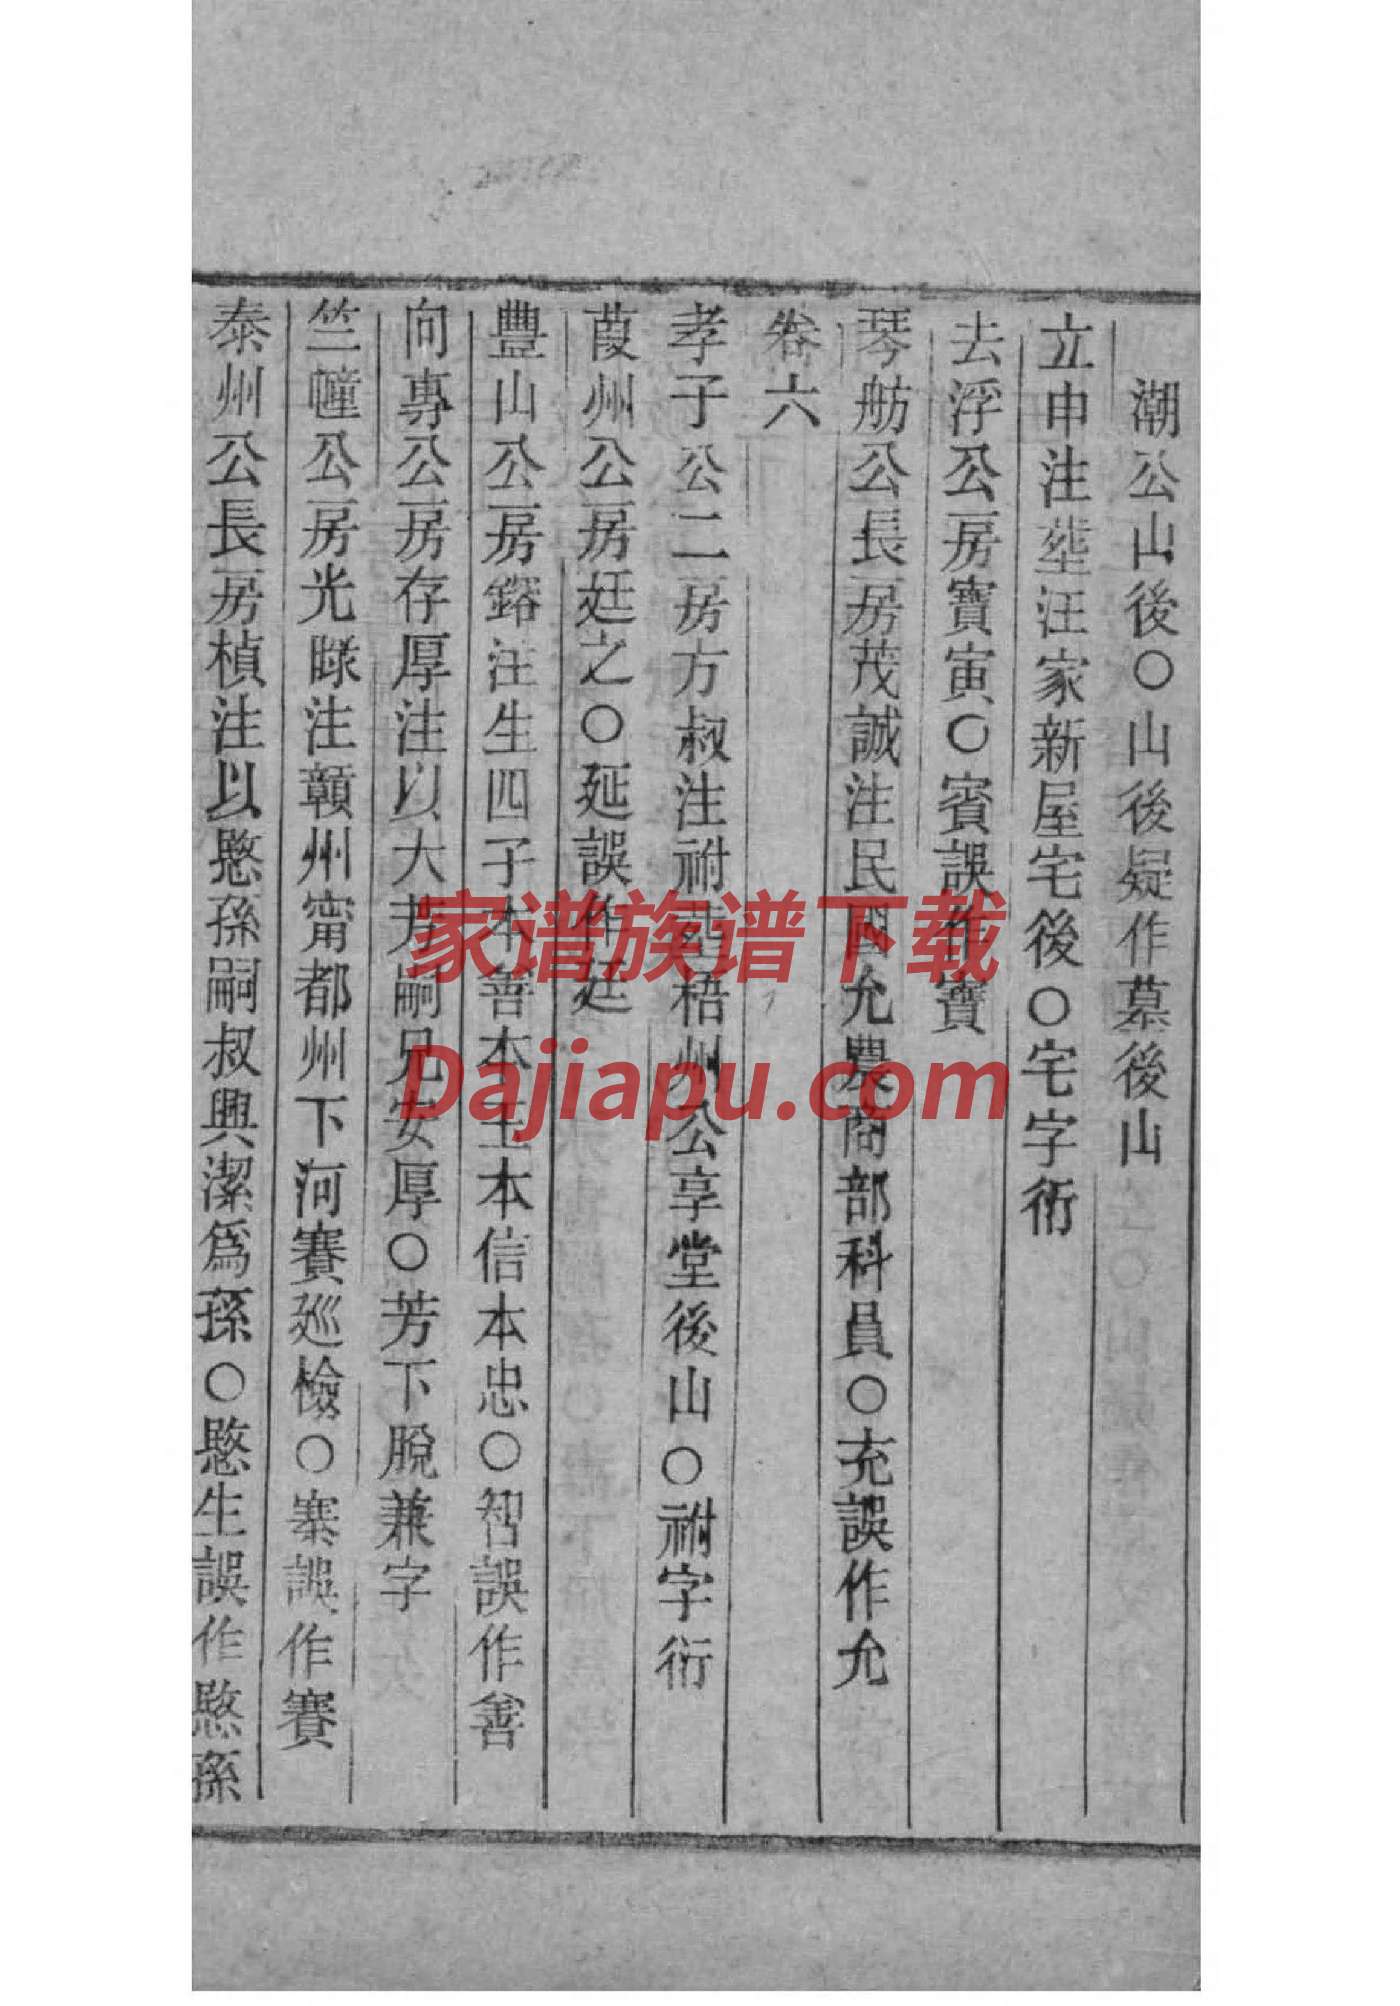 潮公山後○山後疑作墓後山
立申注塟汪家新屋宅後○宅字衍
去浮公房寶寅○賓誤作寶
琴舫公長房茂誠注民國允農商部科員○充誤作允
卷六
孝子公二房方叔注祔塟梧州公享堂後山○祔字衍
葭州公房廷之○延誤作廷
豐山公房鎔注生四子本善本生本信本忠○智誤作善
向專公房存厚注以大芳嗣兄安厚○芳下脫兼字
竺幢公房光睩注贛州甯都州下河賽巡檢○寨誤作賽
泰州公長房楨注以愍孫嗣叔興潔爲孫○愍生誤作愍孫
家谱族谱下载
Dajiapu.com